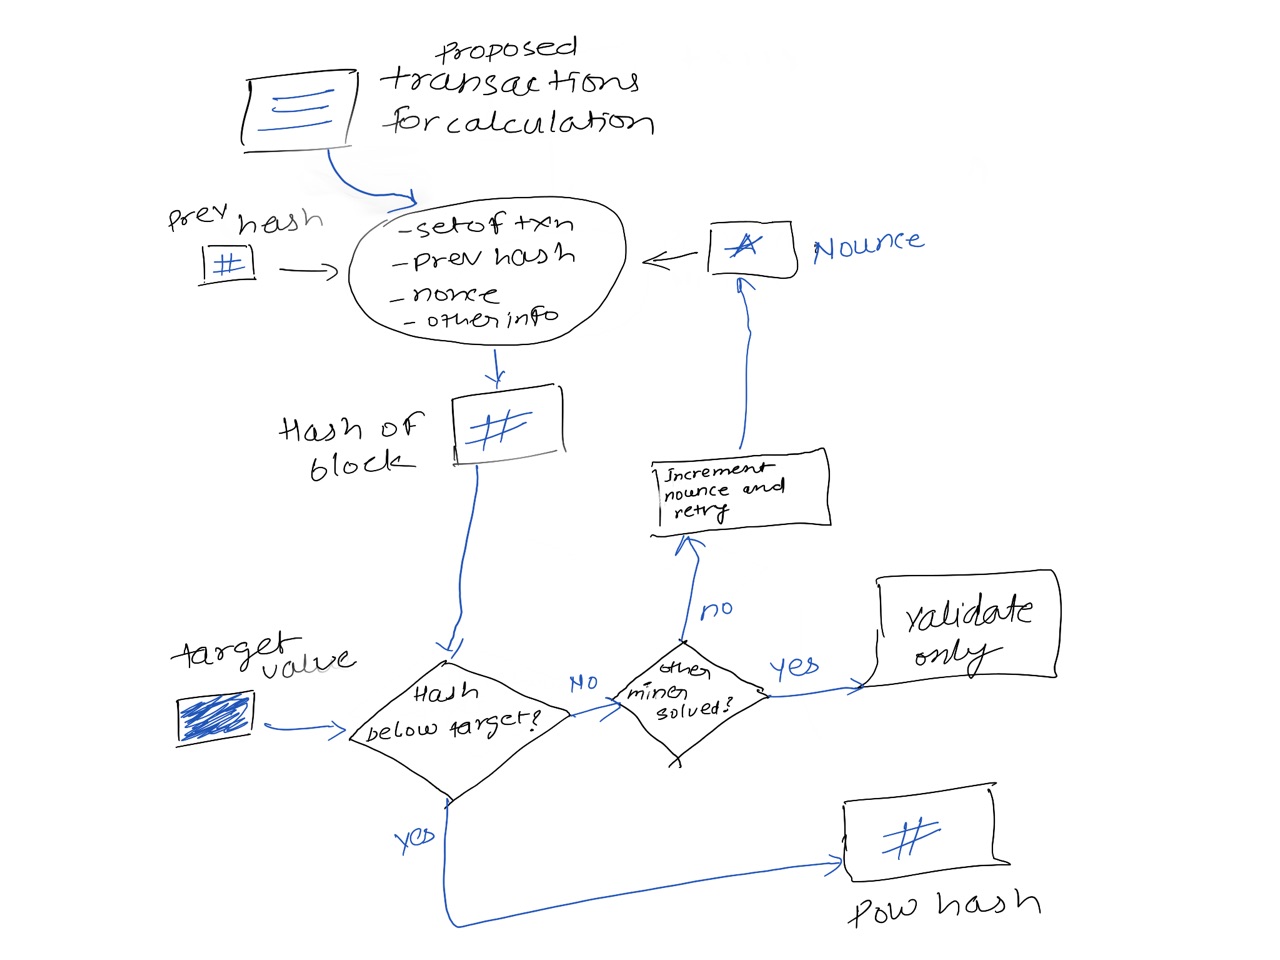 Proposed
transactions
for calculation
prev hash
#
- set of txn
- prev hash
- nonce
- other info
Nounce
Hash of
block
#
Increment
nounce and
retry
no
target
value
Hash
below target?
NO
other
miner
solved?
yes
validate
only
yes
#
Pow hash